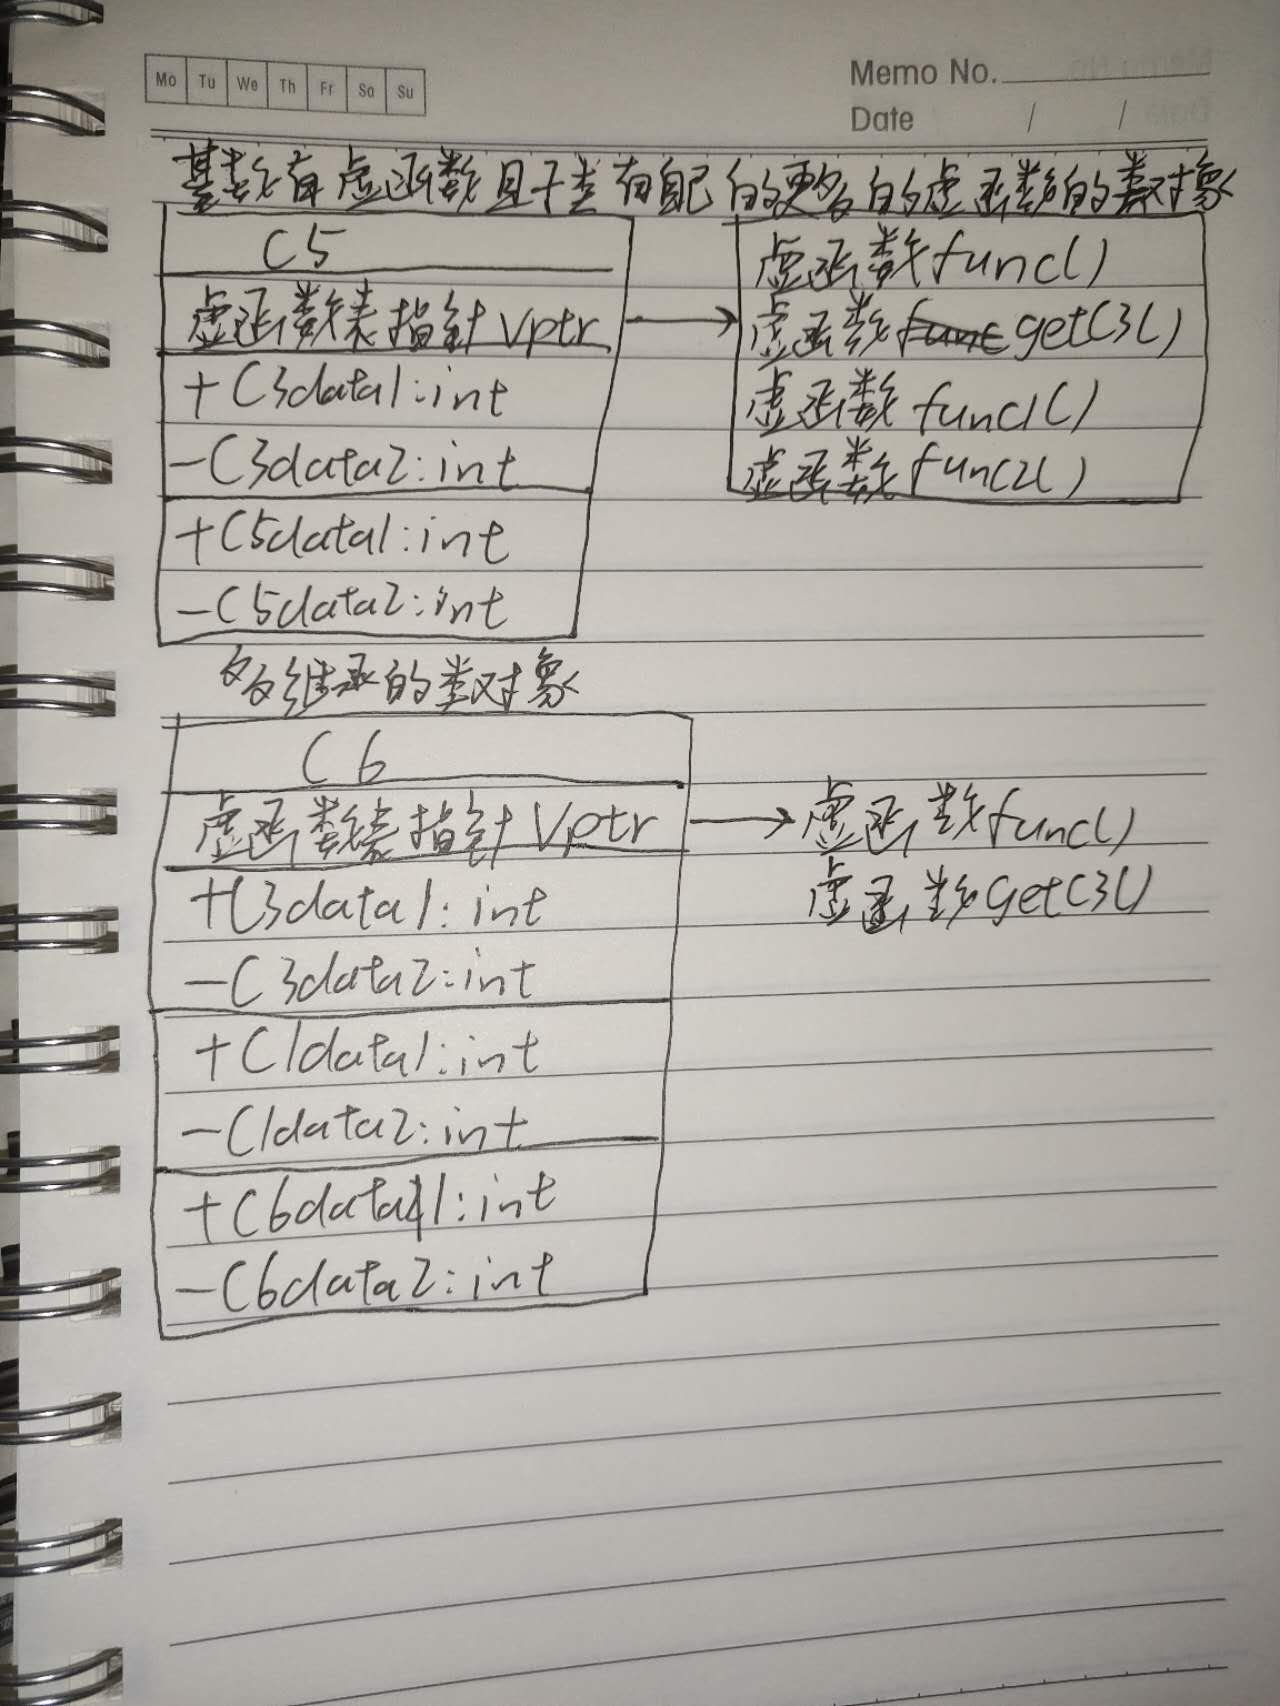 Mo Tu We Th Fr Sa Su
Memo No.
Date / /
基类有虚函数且子类有自己的更多的虚函数的类对象
C5
虚函数表指针Vptr
+C3data1:int
-C3data2:int
+C5data1:int
-C5data2:int
虚函数func()
虚函数getC3()
虚函数func1()
虚函数func2()
多继承的类对象
C6
虚函数表指针Vptr
+C3data1:int
-C3data2:int
+C1data1:int
-C1data2:int
+C6data1:int
-C6data2:int
虚函数func()
虚函数getC3()